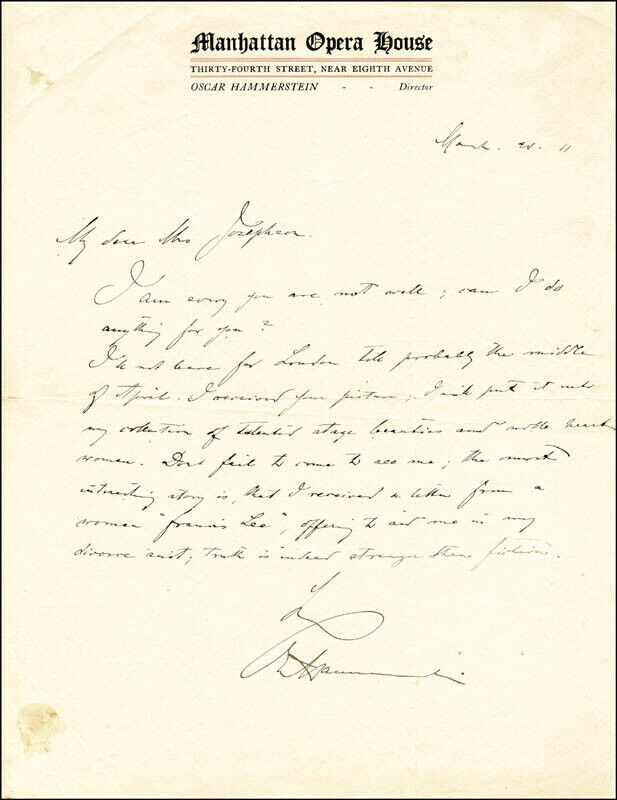 Manhattan Opera House
THIRTY-FOURTH STREET, NEAR EIGHTH AVENUE
OSCAR HAMMERSTEIN - - Director
March 11
My dear Mrs Josephson.
I am sorry you are not well; can I do
anything for you?
I'll not leave for London till probably the middle
of April. I received your picture; I will put it into
my collection of talented stage beauties and noble heart
women. Dont fail to come to see me; the most
interesting story is, that I received a letter from a
woman "Francis Lee", offering to aid me in my
divorce suit; truth is indeed stranger than fiction.
Hammerstein